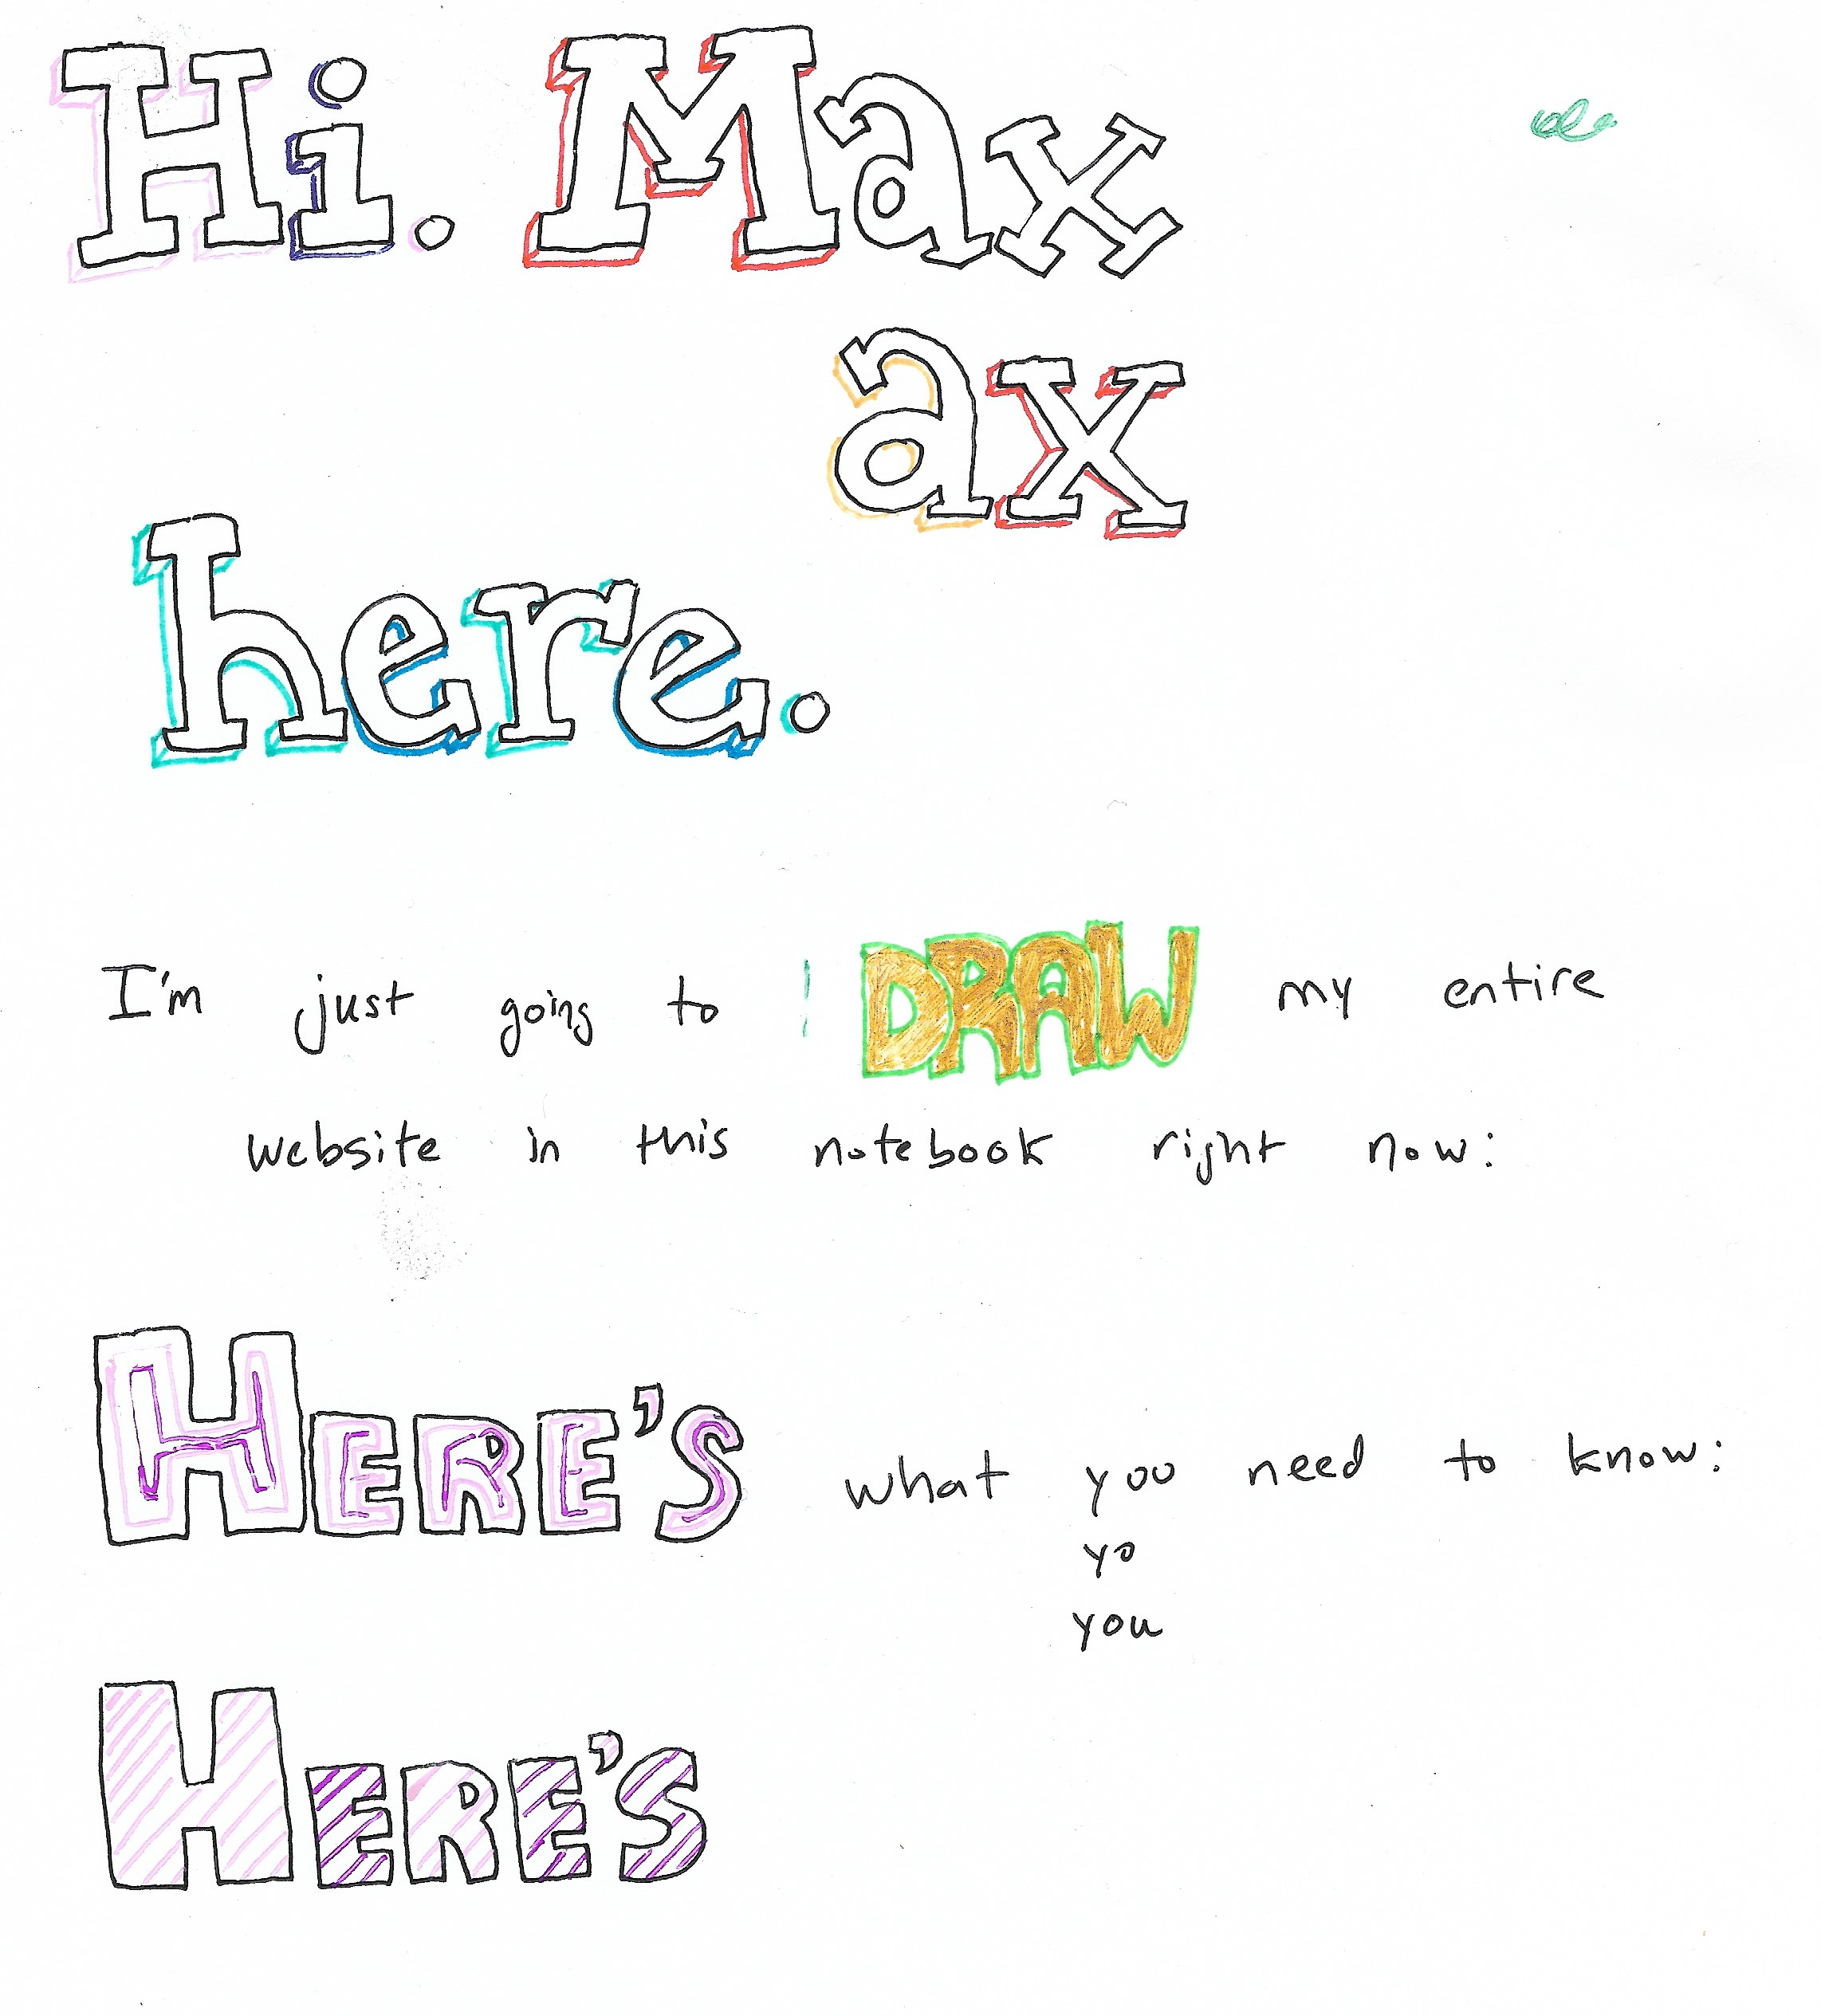 Hi. Max
ax
here.
I'm just going to DRAW my entire
website in this notebook right now:
HERE'S what you need to know:
yo
you
HERE'S